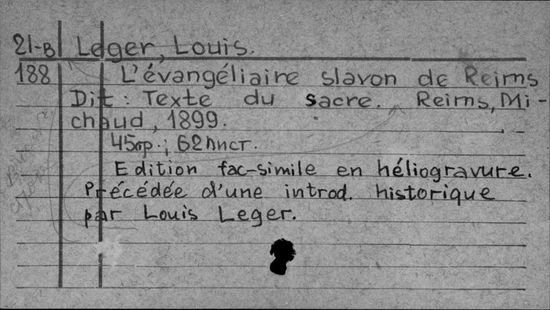 21-В Leger, Louis.
188 L'évangéliaire slavon de Reims
Dit: Texte du sacre. Reims, Mi-
chaud, 1899.
45ор.; 62лист.
Edition fac-simile en héliogravure.
Précédée d'une introd. historique
par Louis Leger.